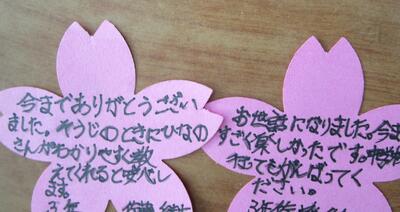 今までありがとうござい
ました。そうじのときにひなの
さんがわかりやすく教
えてくれると安心し
ます。
3年
お世話になりました。今まで
すごく楽しかったです。中学校
行ってもがんばってく
ださい。
3年